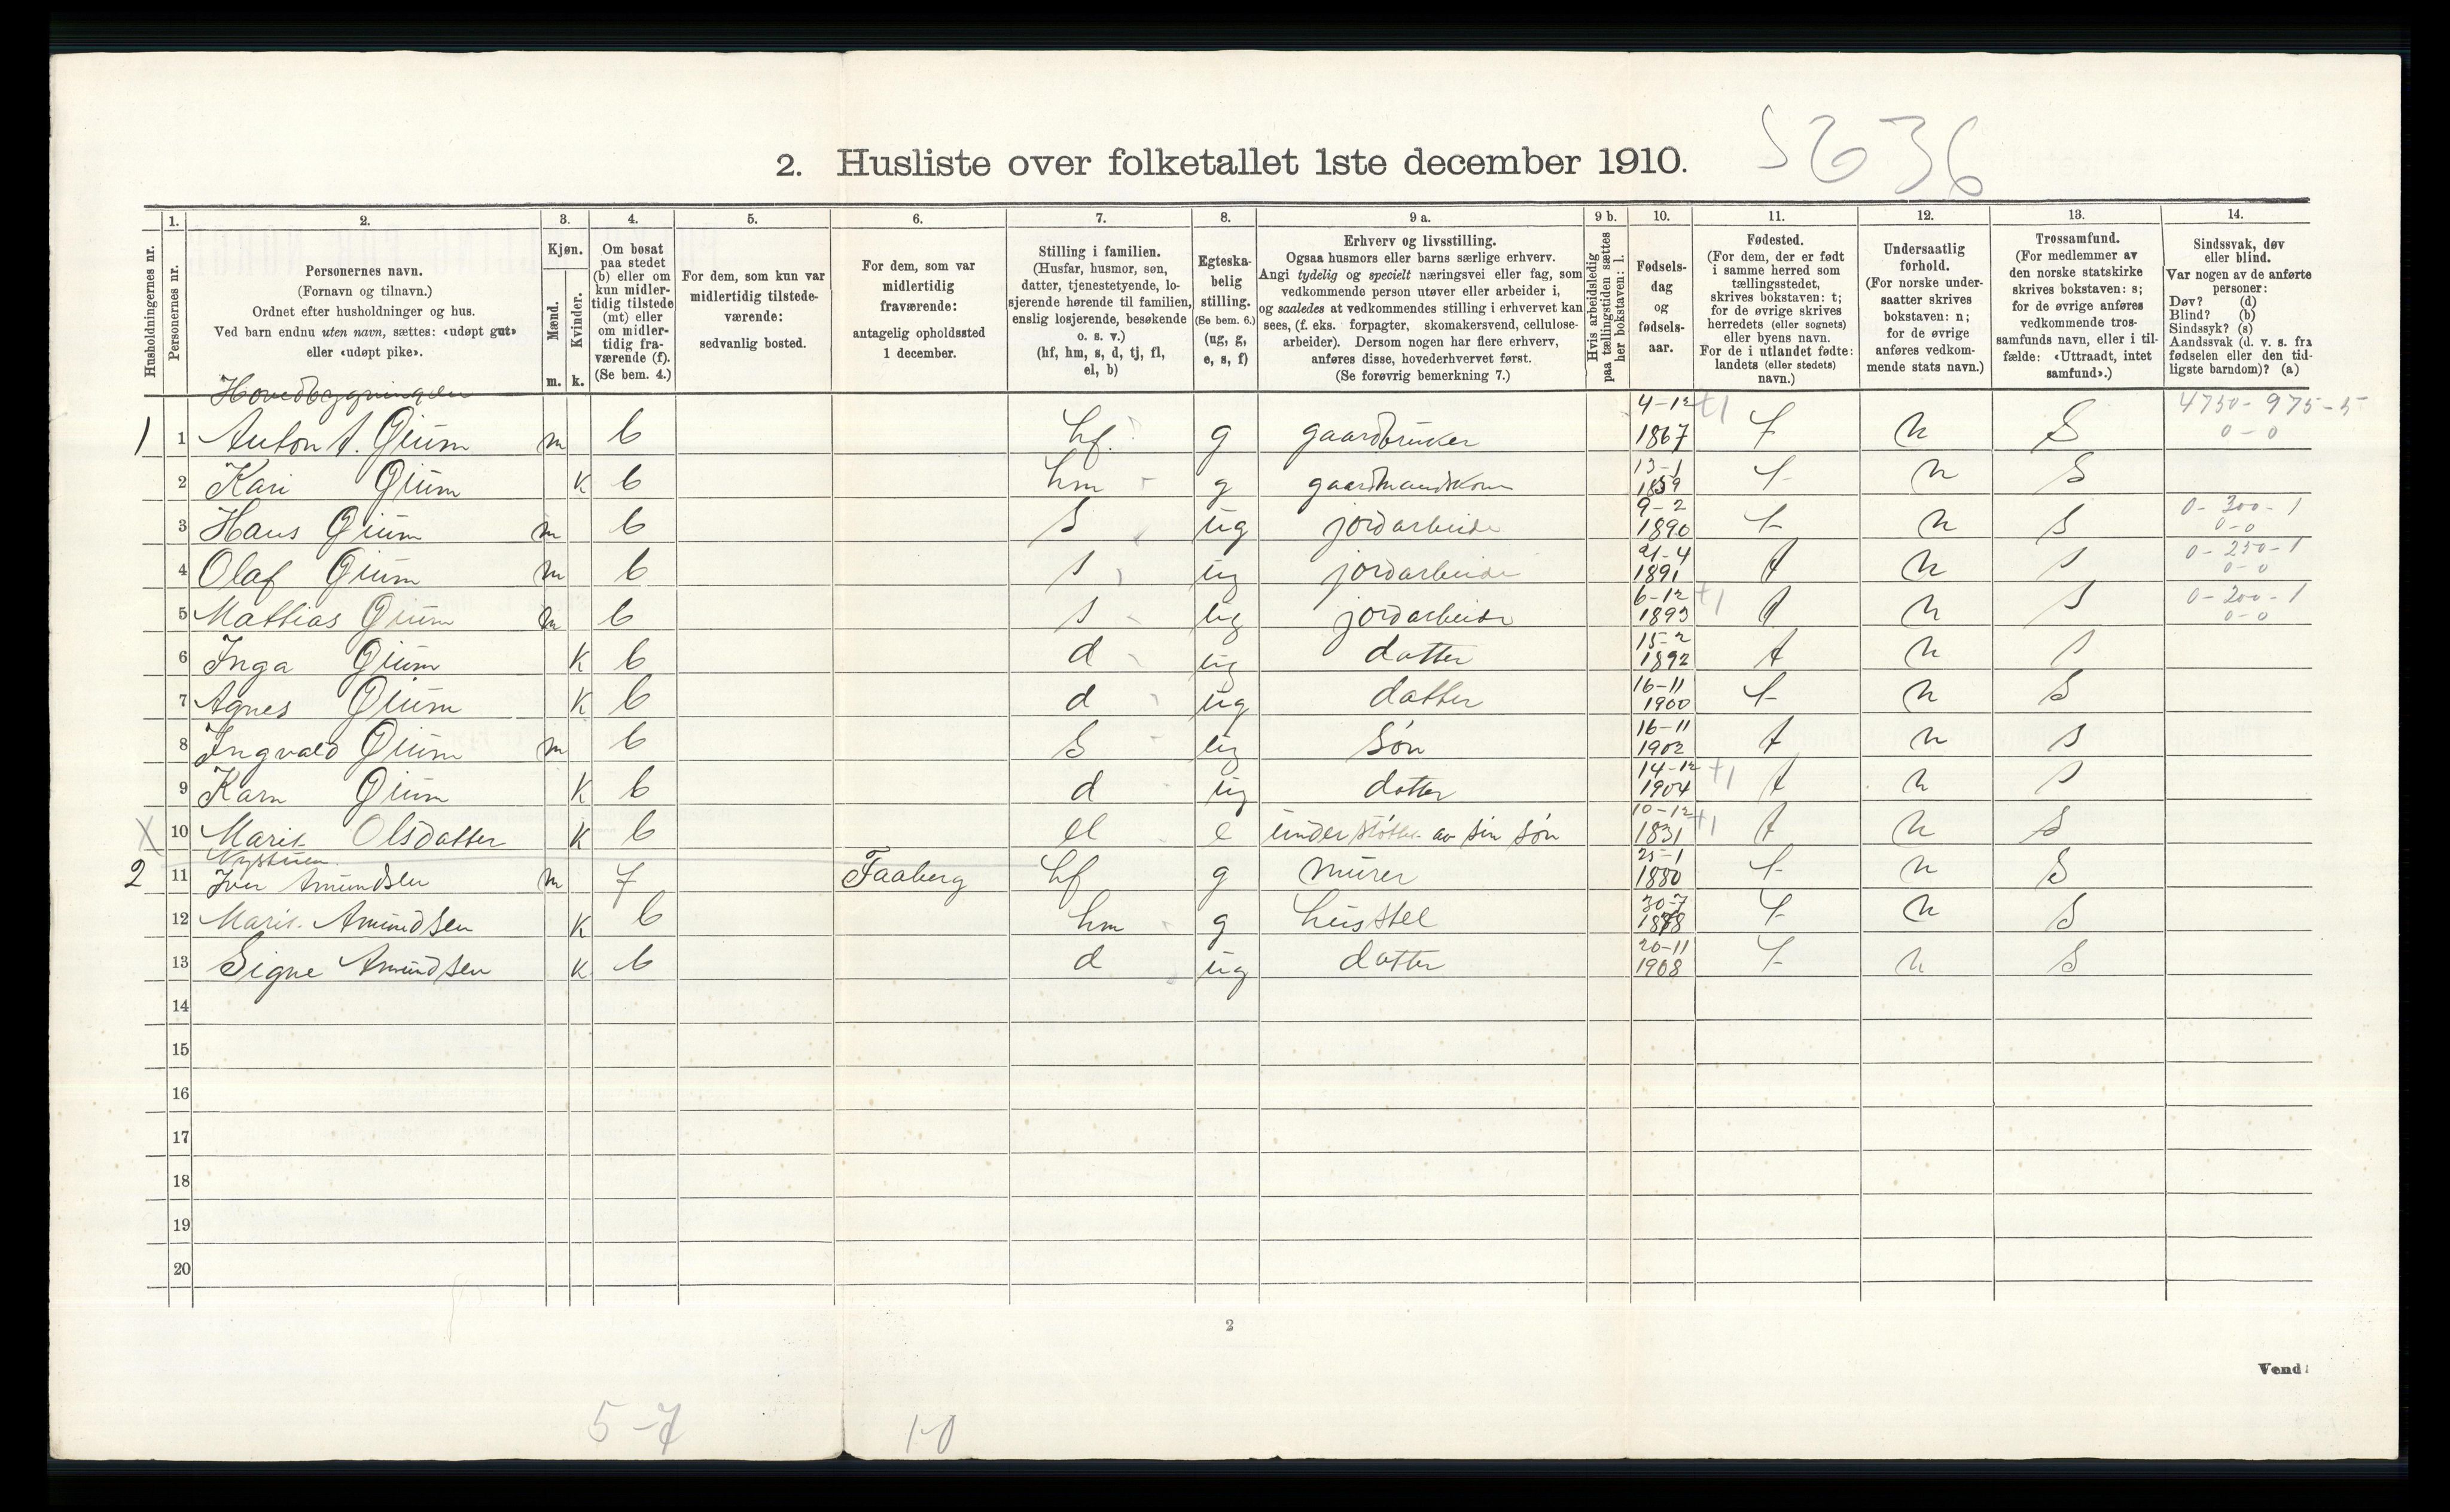 S 636
2. Husliste over folketallet 1ste december 1910.
1. 2. 3. 4. 5. 6. 7. 8. 9 a. 9 b. 10. 11. 12. 13. 14.
Husholdningernes nr.
Personernes nr.
Personernes navn.
(Fornavn og tilnavn.)
Ordnet efter husholdninger og hus.
Ved barn endnu uten navn, sættes: «udøpt gut»
eller «udøpt pike».
Kjøn.
Mænd.
Kvinder.
m. k.
Om bosat
paa stedet
(b) eller om
kun midler-
tidig tilstede
(mt) eller
om midler-
tidig fra-
værende (f).
(Se bem. 4.)
For dem, som kun var
midlertidig tilstede-
værende:
sedvanlig bosted.
For dem, som var
midlertidig
fraværende:
antagelig opholdssted
1 december.
Stilling i familien.
(Husfar, husmor, søn,
datter, tjenestetyende, lo-
sjerende hørende til familien,
enslig losjerende, besøkende
o. s. v.)
(hf, hm, s, d, tj, fl,
el, b)
Egteska-
belig
stilling.
(Se bem. 6.)
(ug, g,
e, s, f)
Erhverv og livsstilling.
Ogsaa husmors eller barns særlige erhverv.
Angi tydelig og specielt næringsvei eller fag, som
vedkommende person utøver eller arbeider i,
og saaledes at vedkommendes stilling i erhvervet kan
sees, (f. eks. forpagter, skomakersvend, cellulose-
arbeider). Dersom nogen har flere erhverv,
anføres disse, hovederhvervet først.
(Se forøvrig bemerkning 7.)
Hvis arbeidsledig
paa tællingstiden sættes
her bokstaven: l.
Fødsels-
dag
og
fødsels-
aar.
Fødested.
(For dem, der er født
i samme herred som
tællingsstedet,
skrives bokstaven: t;
for de øvrige skrives
herredets (eller sognets)
eller byens navn.
For de i utlandet fødte:
landets (eller stedets)
navn.)
Undersaatlig
forhold.
(For norske under-
saatter skrives
bokstaven: n;
for de øvrige
anføres vedkom-
mende stats navn.)
Trossamfund.
(For medlemmer av
den norske statskirke
skrives bokstaven: s;
for de øvrige anføres
vedkommende tros-
samfunds navn, eller i til-
fælde: «Uttraadt, intet
samfund».)
Sindssvak, døv
eller blind.
Var nogen av de anførte
personer:
Døv? (d)
Blind? (b)
Sindssyk? (s)
Aandssvak (d. v. s. fra
fødselen eller den tid-
ligste barndom)? (a)
Hovedbygningen
1 1 Anton A. Gium m b hf. g gaardbruker 4-12 1867 +1 t n S 4750-975-5 0-0
2 Kari Gium k b hm g gaardmandskone 13-1 1859 t n S
3 Hans Gium m b S ug jordarbeide 9-2 1890 t n S 0-300-1 0-0
4 Olaf Gium m b s ug jordarbeide 21-4 1891 t n s 0-250-1 0-0
5 Mathias Gium m b s ug jordarbeide 6-12 1893 +1 t n s 0-200-1 0-0
6 Inga Gium k b d ug datter 15-2 1892 t n s
7 Agnes Gium k b d ug datter 16-11 1900 t n S
8 Ingvald Gium m b S ug Søn 16-11 1902 t n s
9 Karn Gium k b d ug datter 14-12 1904 +1 t n s
X 10 Marit Olsdatter k b el e understøttes av sin søn 10-12 1831 +1 t n S
Nystuen.
2 11 Iver Amundsen m f Faaberg hf g murer 25-1 1880 t n S
12 Marit Amundsen k b hm g husstel 30-7 1878 t n S
13 Signe Amundsen k b d ug datter 20-11 1908 t n S
14
15
16
17
18
19
20
2
Vend!
5-7 1-0